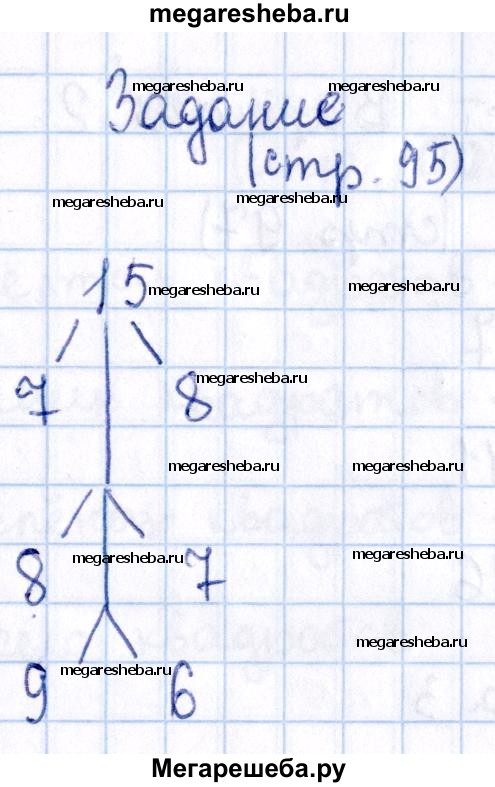 megaresheba.ru
megaresheba.ru megaresheba.ru
Задание
(стр. 95)
megaresheba.ru megaresheba.ru
15 megaresheba.ru megaresheba.ru
megaresheba.ru
7 8
megaresheba.ru megaresheba.ru
megaresheba.ru megaresheba.ru
8 7
megaresheba.ru
megaresheba.ru
9 6
Мегарешеба.ру